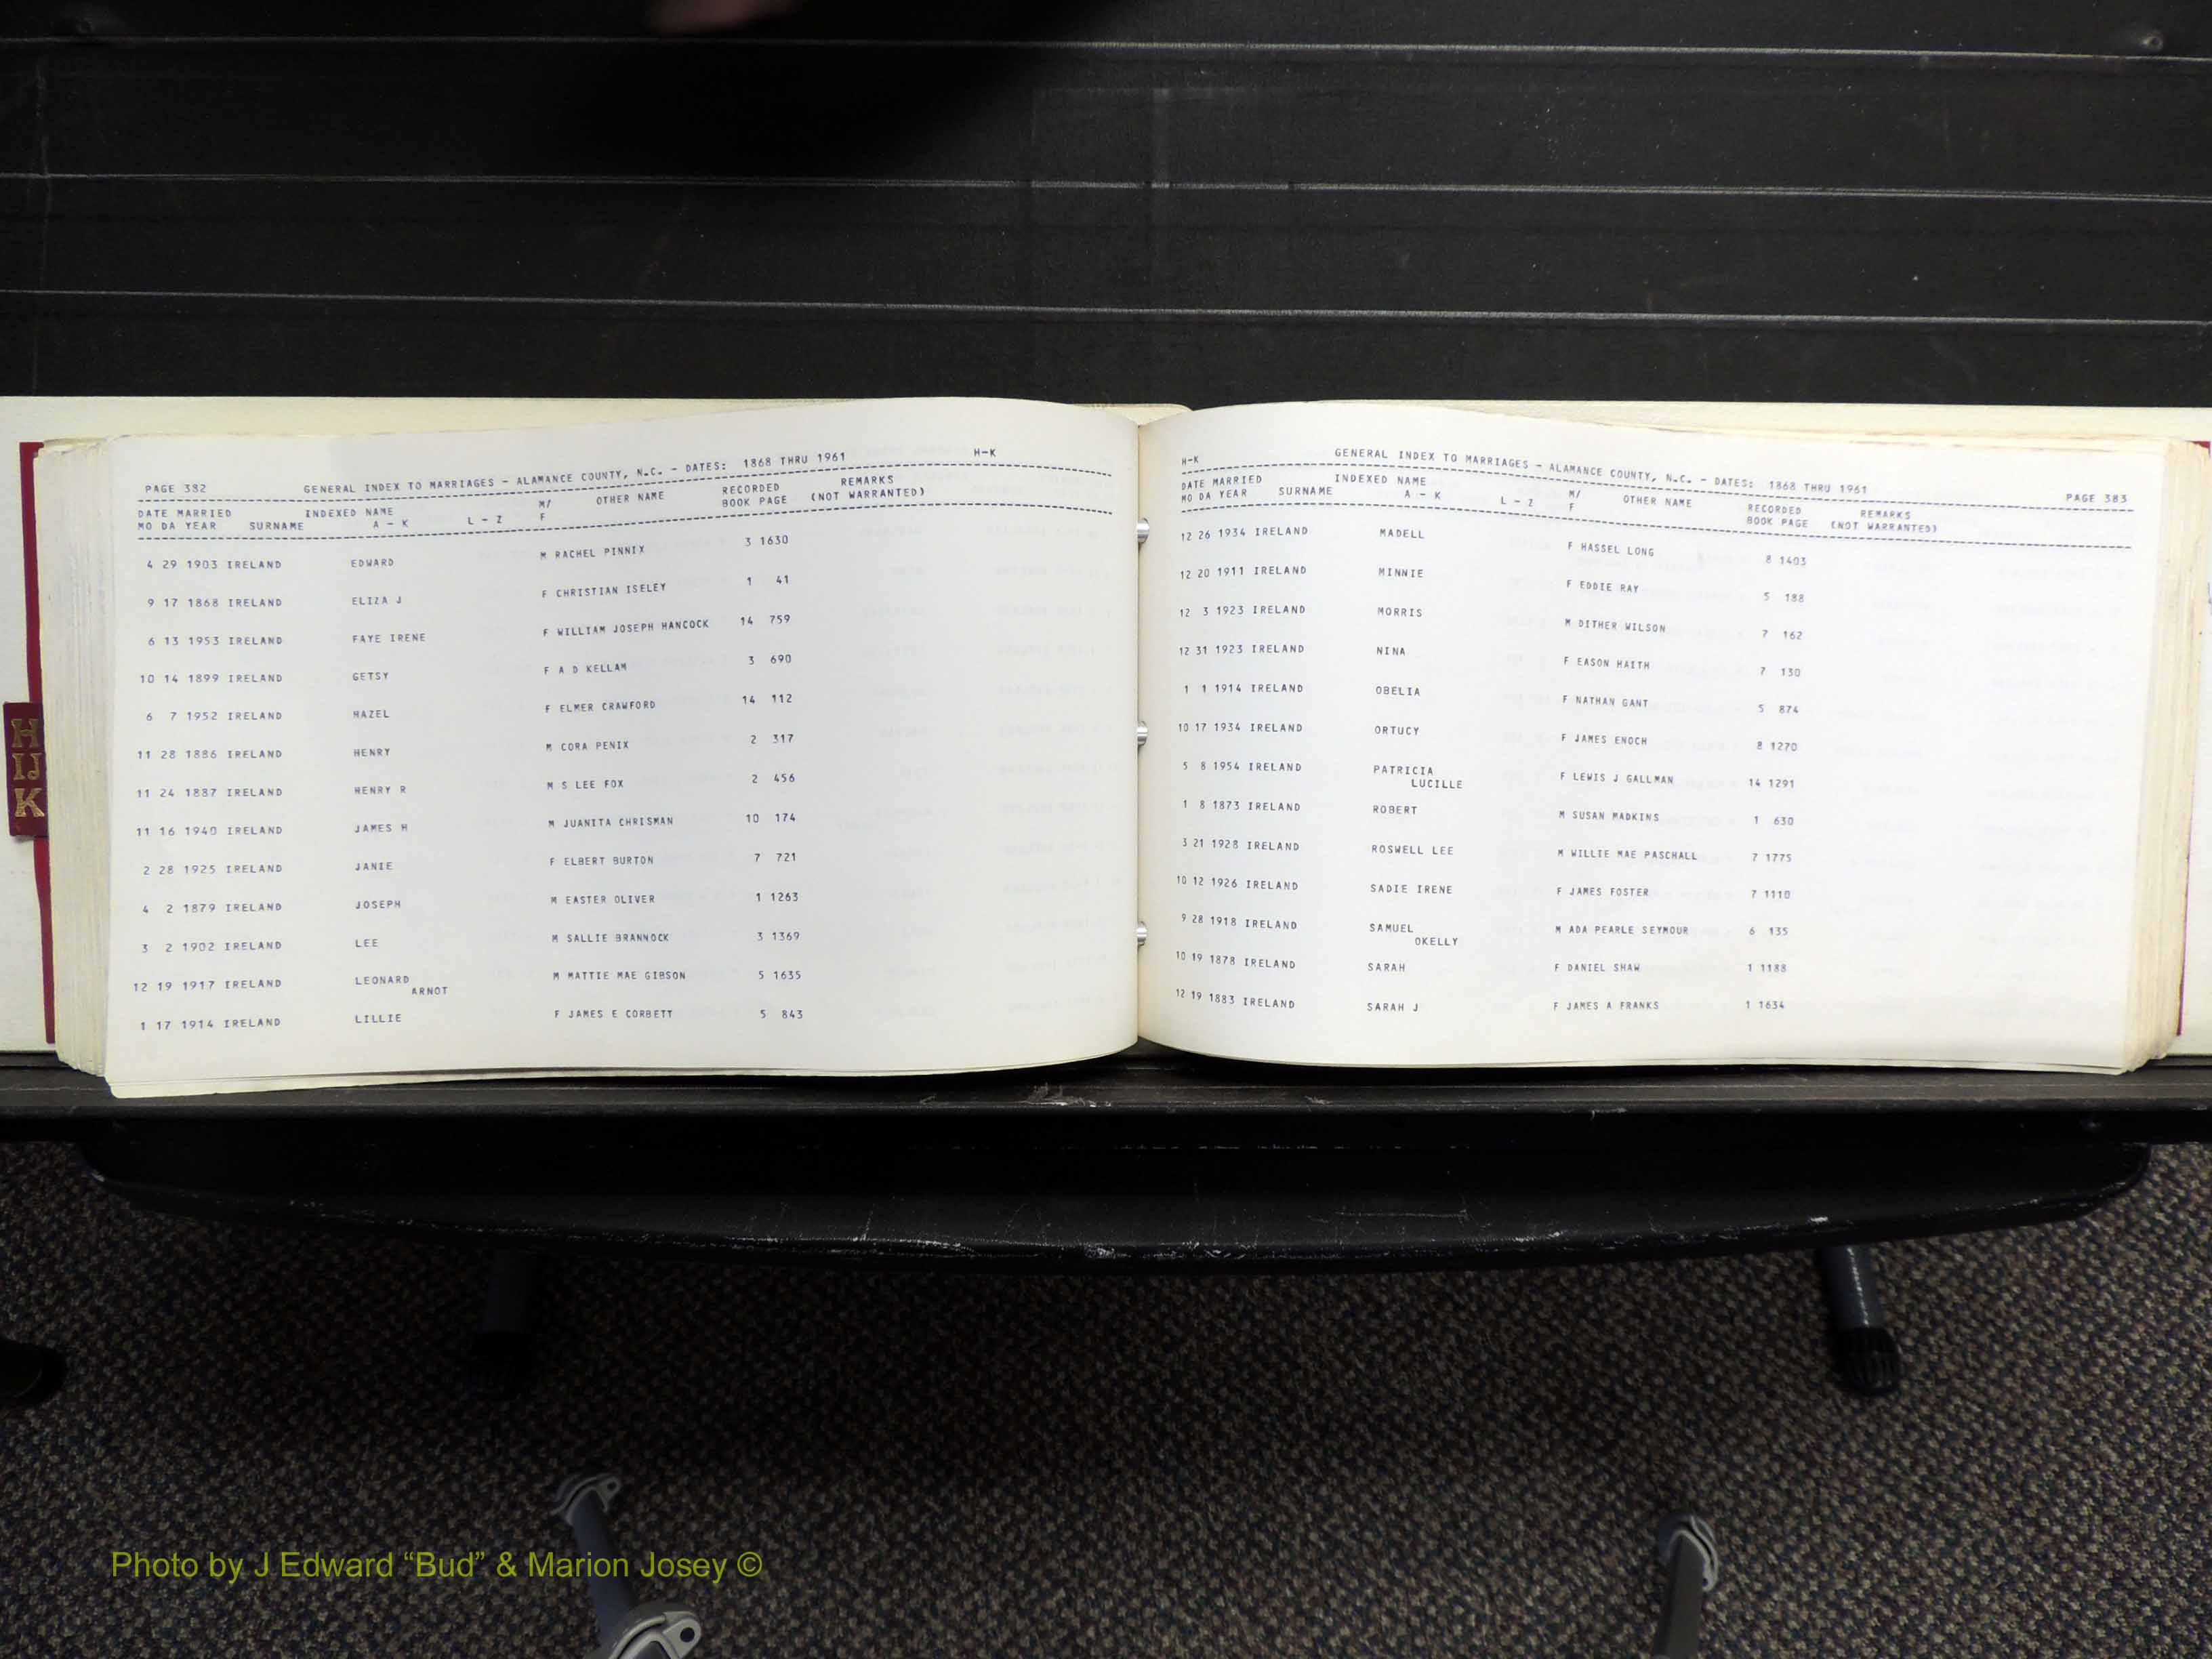 PAGE 382 GENERAL INDEX TO MARRIAGES - ALAMANCE COUNTY, N.C. - DATES: 1868 THRU 1961 H-K
DATE MARRIED INDEXED NAME M/ OTHER NAME RECORDED REMARKS
MO DA YEAR SURNAME A - K L - Z F BOOK PAGE (NOT WARRANTED)
4 29 1903 IRELAND EDWARD M RACHEL PINNIX 3 1630
9 17 1868 IRELAND ELIZA J F CHRISTIAN ISELEY 1 41
6 13 1953 IRELAND FAYE IRENE F WILLIAM JOSEPH HANCOCK 14 759
10 14 1899 IRELAND GETSY F A D KELLAM 3 690
6 7 1952 IRELAND HAZEL F ELMER CRAWFORD 14 112
11 28 1886 IRELAND HENRY M CORA PENIX 2 317
11 24 1887 IRELAND HENRY R M S LEE FOX 2 456
11 16 1940 IRELAND JAMES H M JUANITA CHRISMAN 10 174
2 28 1925 IRELAND JANIE F ELBERT BURTON 7 721
4 2 1879 IRELAND JOSEPH M EASTER OLIVER 1 1263
3 2 1902 IRELAND LEE M SALLIE BRANNOCK 3 1369
12 19 1917 IRELAND LEONARD M MATTIE MAE GIBSON 5 1635
ARNOT
1 17 1914 IRELAND LILLIE F JAMES E CORBETT 5 843
H-K GENERAL INDEX TO MARRIAGES - ALAMANCE COUNTY, N.C. - DATES: 1868 THRU 1961 PAGE 383
DATE MARRIED INDEXED NAME M/ OTHER NAME RECORDED REMARKS
MO DA YEAR SURNAME A - K L - Z F BOOK PAGE (NOT WARRANTED)
12 26 1934 IRELAND MADELL F HASSEL LONG 8 1403
12 20 1911 IRELAND MINNIE F EDDIE RAY 5 188
12 3 1923 IRELAND MORRIS M DITHER WILSON 7 162
12 31 1923 IRELAND NINA F EASON HAITH 7 130
1 1 1914 IRELAND OBELIA F NATHAN GANT 5 874
10 17 1934 IRELAND ORTUCY F JAMES ENOCH 8 1270
5 8 1954 IRELAND PATRICIA F LEWIS J GALLMAN 14 1291
LUCILLE
1 8 1873 IRELAND ROBERT M SUSAN MADKINS 1 630
3 21 1928 IRELAND ROSWELL LEE M WILLIE MAE PASCHALL 7 1775
10 12 1926 IRELAND SADIE IRENE F JAMES FOSTER 7 1110
9 28 1918 IRELAND SAMUEL M ADA PEARLE SEYMOUR 6 135
OKELLY
10 19 1878 IRELAND SARAH F DANIEL SHAW 1 1188
12 19 1883 IRELAND SARAH J F JAMES A FRANKS 1 1634
H
IJ
K
Photo by J Edward “Bud” & Marion Josey ©